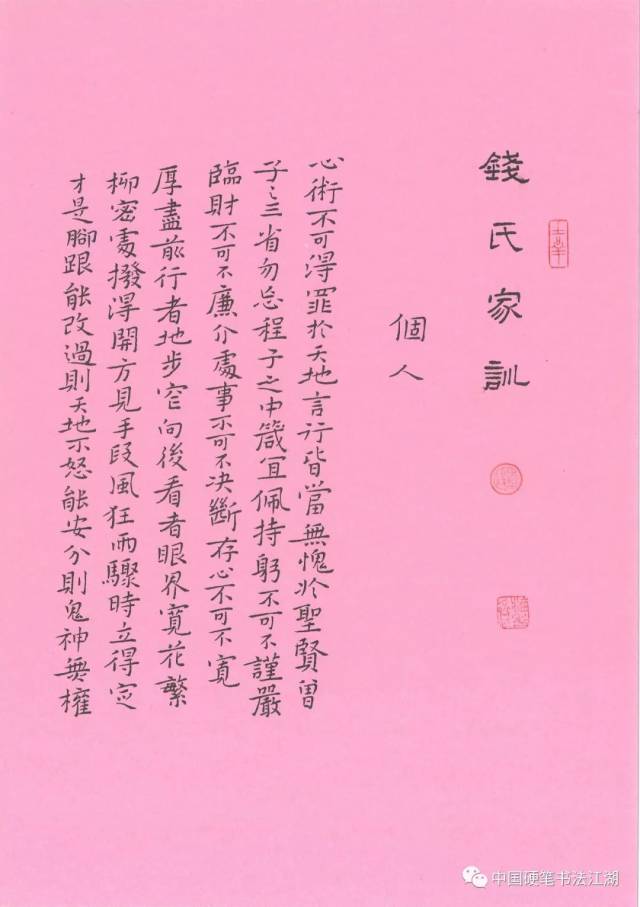 錢氏家訓
個人
心術不可得罪於天地言行皆當無愧於聖賢曾
子之三省勿忘程子之中箴宜佩持躬不可不謹嚴
臨財不可不廉介處事不可不决斷存心不可不寬
厚盡前行者地步窄向後看者眼界寬花繁
柳密處撥得開方見手段風狂雨驟時立得定
才是腳跟能改過則天地不怒能安分則鬼神無權
中国硬笔书法江湖